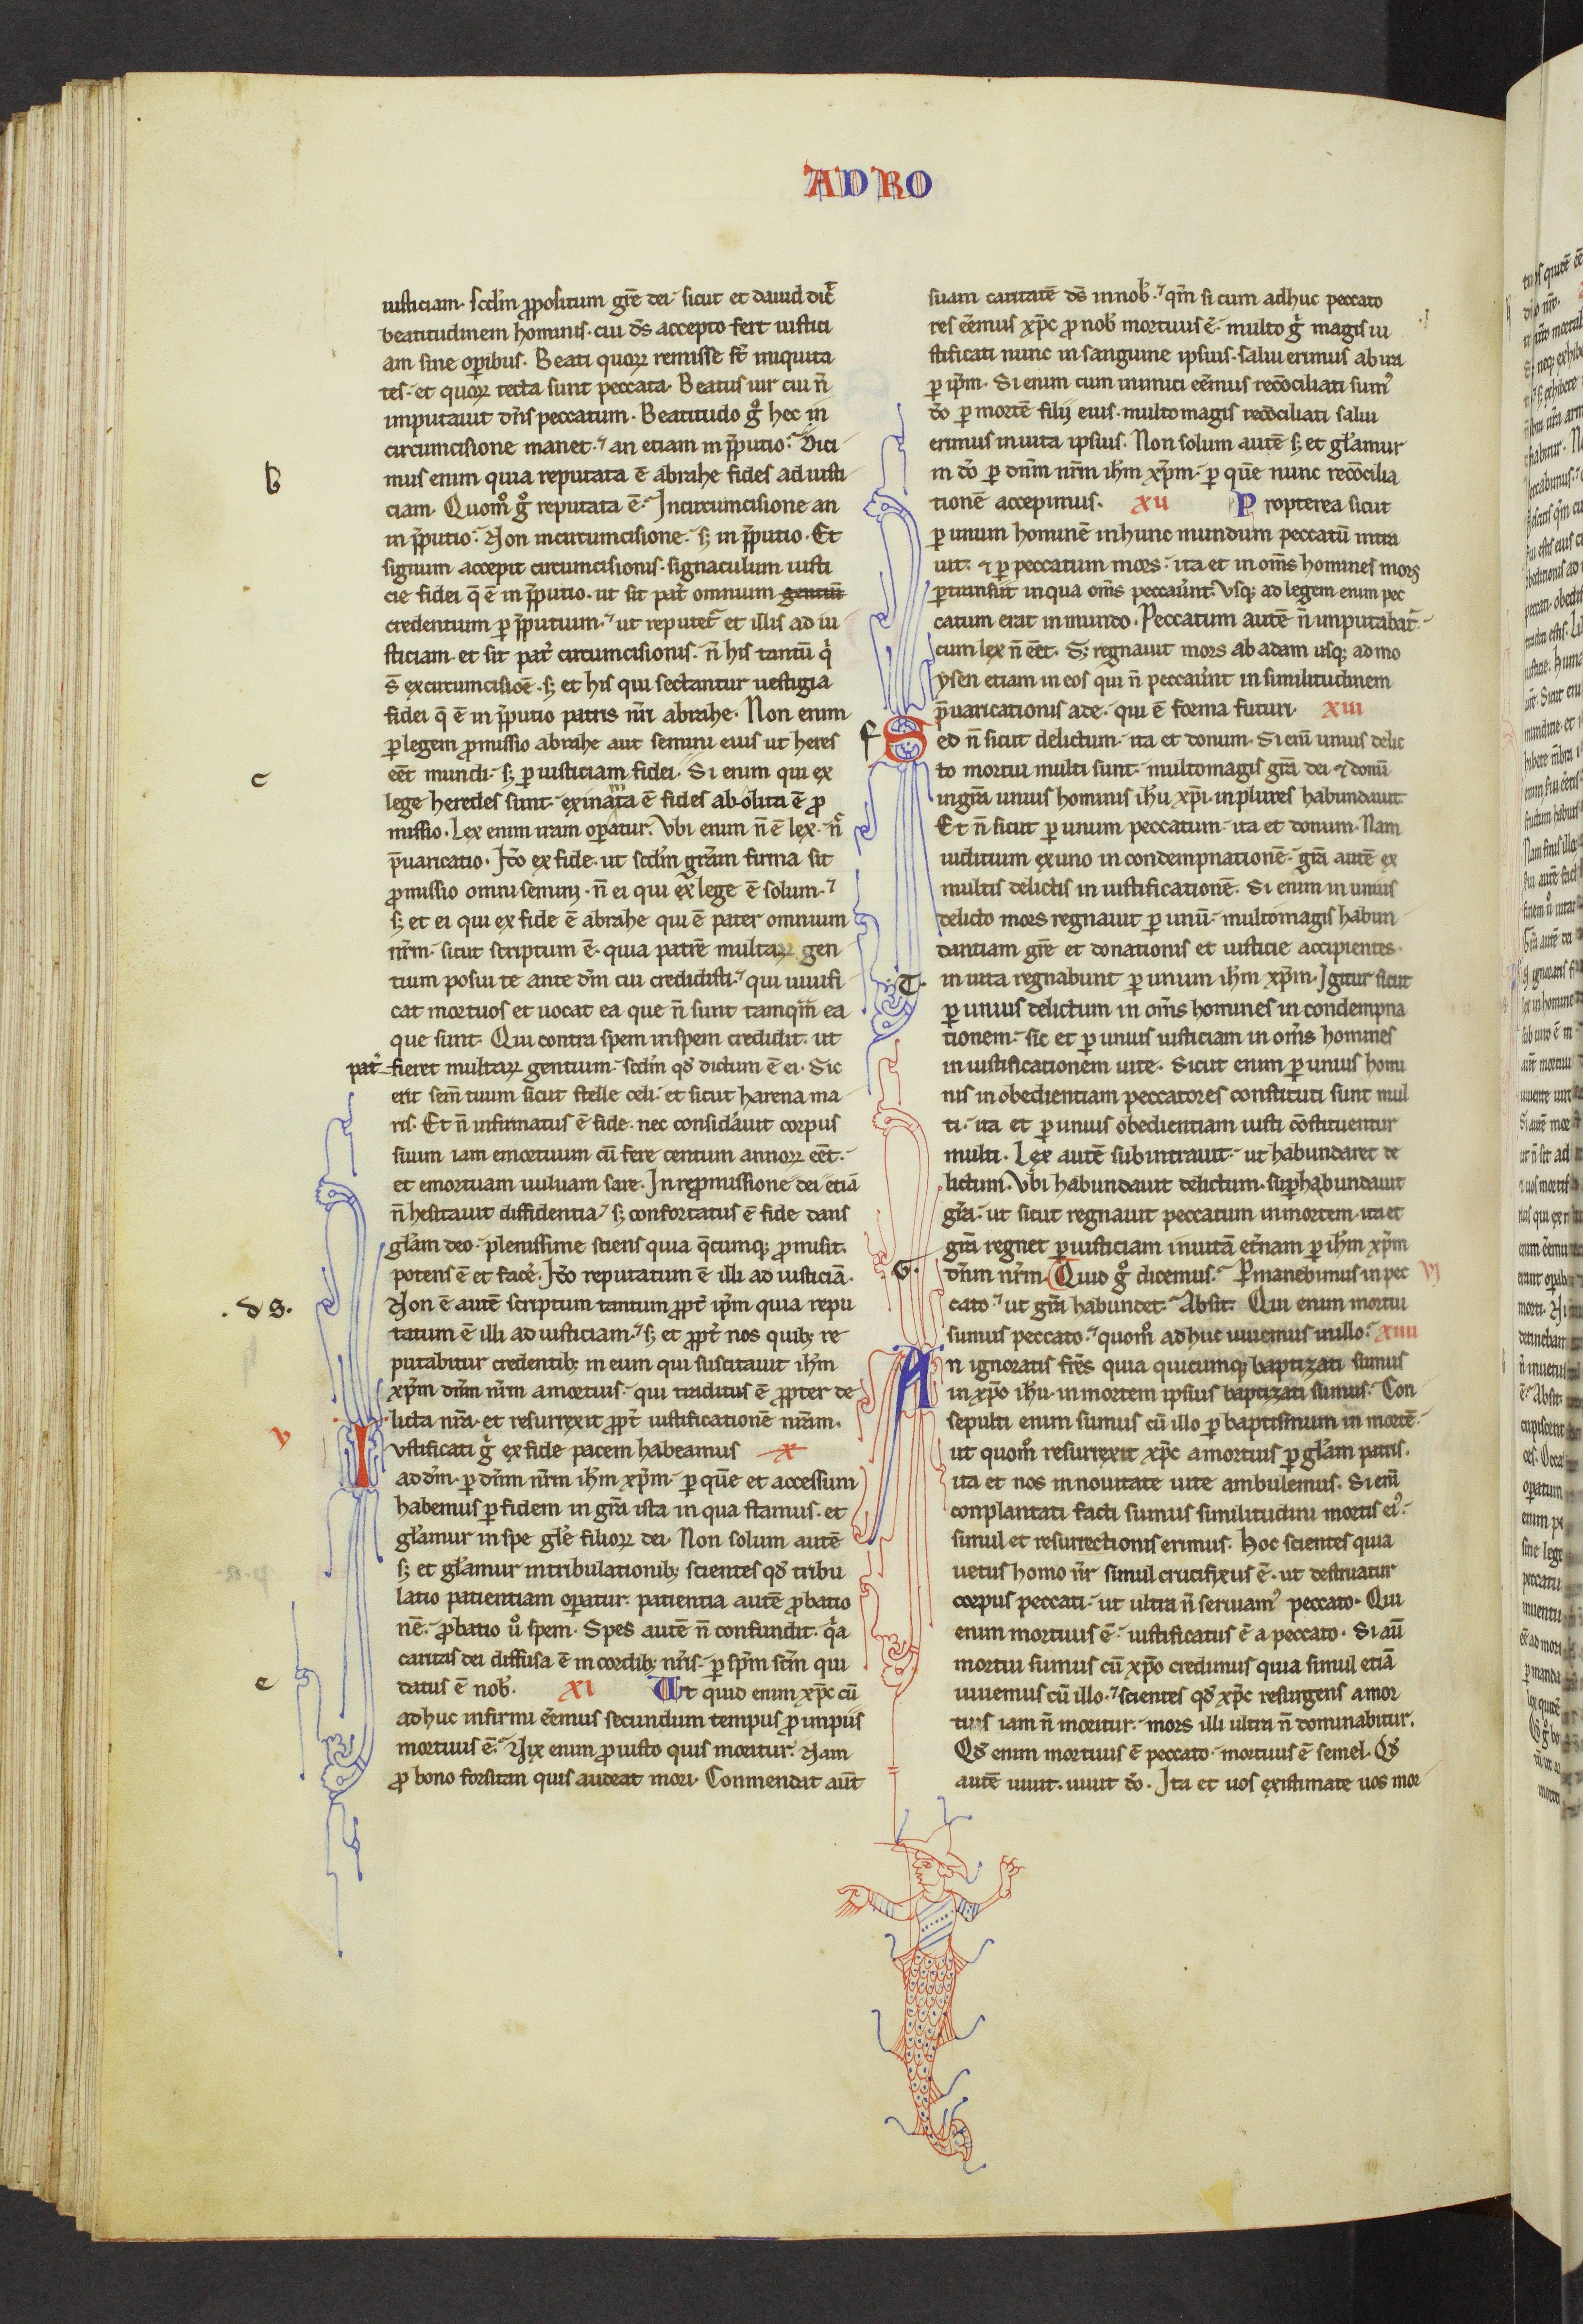 AD RO
iusticiam. scd'm ꝓpositum gr̄e dei. sicut et dauid dic̄
beatitudinem hominis. cui ds̄ accepto fert iustici
am sine oꝑibus. Beati quoꝝ remisse st̄ iniquita
tes. et quoꝝ tecta sunt peccata. Beatus uir cui n̄
imputauit dn̄s peccatum. Beatitudo gͦ hec in
circumcisione manet. an etiam in p̄putio. Dici
mus enim quia reputata ē abrahe fides ad iusti
ciam. Quomͦ gͦ reputata ē. In circumcisione an
in p̄putio. Non in circumcisione. sꝫ in p̄putio. Et
signum accepit circumcisionis. signaculum iusti
cie fidei q̄ ē in p̄putio. ut sit pat̓ omnium gentiū
credentium ꝑ p̄putium. ut reputet̄ et illis ad iu
sticiam. et sit pat̓ circumcisionis. n̄ his tantū qͥ
s̄ ex circumcisiōe. sꝫ et his qui sectantur uestigia
fidei q̄ ē in p̄putio patris nr̄i abrahe. Non enim
ꝑ legem ꝓmissio abrahe aut semini eius ut heres
eēt mundi. sꝫ ꝑ iusticiam fidei. Si enim qui ex
lege heredes sunt. exinanita ē fides abolita ē ꝓ
missio. Lex enim iram oꝑatur. Vbi enim n̄ ē lex. n̄
p̄uaricatio. Ido ex fide. ut scd'm gr̄am firma sit
ꝓmissio omni semini. n̄ ei qui ex lege ē solum.
sꝫ et ei qui ex fide ē abrahe qui ē pater omnium
nr̄m. sicut scriptum ē. quia patrē multaꝝ gen
tium posui te ante dm̄ cui credidisti. qui uiuifi
cat mortuos et uocat ea que n̄ sunt tamqm̄ ea
que sunt. Qui contra spem in spem credidit. ut
pat̓ fieret multaꝝ gentium. scd'm qd̄ dictum ē ei. Sic
erit sem̄ tuum sicut stelle celi. et sicut harena ma
ris. Et n̄ infirmatus ē fide. nec considāuit corpus
suum iam emortuum cū fere centum annoꝝ eēt.
et emortuam uuluam sare. In repromissione dei etiā
n̄ hesitauit diffidentia. sꝫ confortatus ē fide dans
gl̄am deo. plenissime sciens quia q̄cumqꝫ ꝓmisit.
potens ē et face̓. Ido reputatum ē illi ad iusticiā.
Non ē autē scriptum tantum ꝓpt̓ ip̄m quia repu
tatum ē illi ad iusticiam. sꝫ et ꝓpt̓ nos quibꝫ re
putabitur credentibꝫ in eum qui suscitauit ihm̄
xp̄m dn̄m nr̄m a mortuis. qui traditus ē ꝓpter de
licta nr̄a. et resurrexit ꝓpt̓ iustificationē nr̄am.
Iustificati gͦ ex fide pacem habeamus X
ad dm̄. ꝑ dn̄m nr̄m ihm̄ xp̄m. ꝑ quē et accessum
habemus ꝑ fidem in gr̄a ista in qua stamus. et
gl̄amur in spe gl̄e filioꝝ dei. Non solum autē
sꝫ et gl̄amur in tribulationibꝫ scientes qd̄ tribu
latio patientiam oꝑatur. patientia autē ꝓbatio
nē. ꝓbatio uͦ spem. Spes autē n̄ confundit. qͥa
caritas dei diffusa ē in cordibꝫ nr̄is. ꝑ sp̄m sc̄m qui
datus ē nob̄. XI Vt quid enim xp̄c cū
adhuc infirmi eēmus secundum tempus ꝓ impiis
mortuus ē. Vix enim ꝓ iusto quis moritur. Nam
ꝓ bono forsitan quis audeat mori. Conmendat aūt
suam caritatē ds̄ in nob̄. qm̄ si cum adhuc peccato
res eēmus xp̄c ꝓ nob̄ mortuus ē. multo gͦ magis iu
stificati nunc in sanguine ipsius. salui erimus ab ira
ꝑ ip̄m. Si enim cum inimici eēmus recōciliati sumꝰ
do ꝑ mortē filij eius. multo magis recōciliati salui
erimus in uita ipsius. Non solum autē sꝫ et gl̄amur
in do ꝑ dn̄m nr̄m ihm̄ xp̄m. ꝑ quē nunc recōcilia
tionē accepimus. XII Propterea sicut
ꝑ unum hominē in hunc mundum peccatū intra
uit. et ꝑ peccatum mors. ita et in om̄s homines mors
ꝑtransiit in qua om̄s peccaūnt. Vsqꝫ ad legem enim pec
catum erat in mundo. Peccatum autē n̄ imputabat̄.
cum lex n̄ eēt. Sꝫ regnauit mors ab adam usqꝫ ad mo
ysen etiam in eos qui n̄ peccaūnt in similitudinem
p̄uaricationis ade. qui ē forma futuri. XIII
Sed n̄ sicut delictum. ita et donum. Si eni̅ unius delic
to mortui multi sunt. multo magis gr̄a dei et donū
in gr̄a unius hominis ihu xp̄i. in plures habundauit.
Et n̄ sicut ꝑ unum peccatum. ita et donum. Nam
iuditium ex uno in condempnationē. gr̄a autē ex
multis delictis in iustificationē. Si enim in unius
delicto mors regnauit ꝑ unū. multo magis habun
dantiam gr̄e et donationis et iusticie accipientes.
in uita regnabunt ꝑ unum ihm̄ xp̄m. Igitur sicut
ꝑ unius delictum in om̄s homines in condempna
tionem. sic et ꝑ unius iusticiam in om̄s homines
in iustificationem uite. Sicut enim ꝑ unius homi
nis inobedientiam peccatores constituti sunt mul
ti. ita et ꝑ unius obedientiam iusti cōstituentur
multi. Lex autē subintrauit. ut habundaret de
lictum. Vbi habundauit delictum. suꝑhabundauit
gr̄a. ut sicut regnauit peccatum in mortem. ita et
gr̄a regnet ꝑ iusticiam in uitā et̓nam ꝑ ihm̄ xp̄m
dn̄m nr̄m. Quid gͦ dicemus. Ꝑmanebimus in pec VI
cato ut gr̄a habundet. Absit. Qui enim mortui
sumus peccato. quomͦ adhuc uiuemus in illo. XIIII
An ignoratis fr̄es quia quicumqꝫ baptizati sumus
in xp̄o ihu. in mortem ipsius baptizati sumus. Con
sepulti enim sumus cū illo ꝑ baptismum in mortē.
ut quomͦ resurrexit xp̄c a mortuis ꝑ gl̄am patris.
ita et nos in nouitate uite ambulemus. Si eni̅
conplantati facti sumus similitudini mortis eiꝰ.
simul et resurrectionis erimus. Hoc scientes quia
uetus homo nr̄ simul crucifixus ē. ut destruatur
corpus peccati. ut ultra n̄ seruiamꝰ peccato. Qui
enim mortuus ē. iustificatus ē a peccato. Si aū
mortui sumus cū xp̄o credimus quia simul etiā
uiuemus cū illo. scientes qd̄ xp̄c resurgens a mor
tuis iam n̄ moritur. mors illi ultra n̄ dominabitur.
Qd̄ enim mortuus ē peccato. mortuus ē semel. Qd̄
autē uiuit. uiuit do. Ita et uos existimate uos mor
b
c
.d g.
V
e
f
.G.